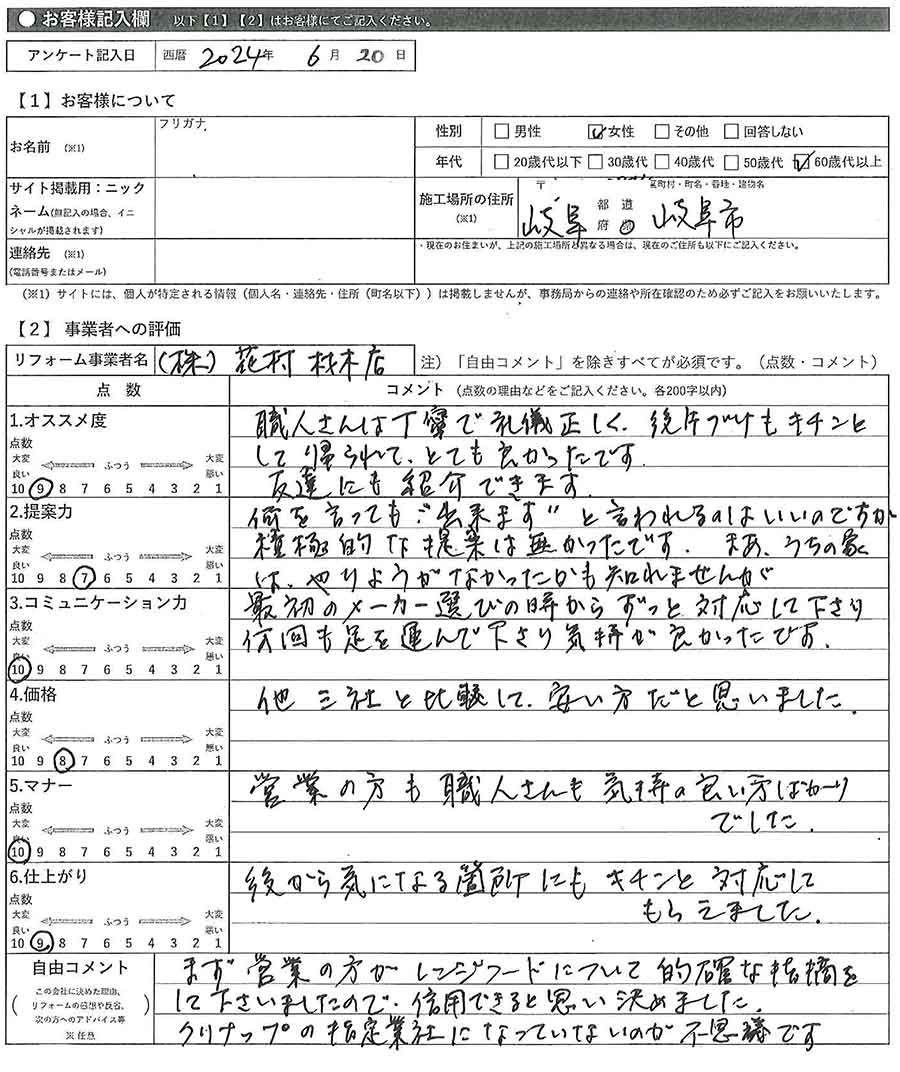 ● お客様記入欄 以下【1】【2】はお客様にてご記入ください。
アンケート記入日 西暦 2024年 6月 20日
【1】お客様について
お名前 (※1) フリガナ
性別 □男性 ☑女性 □その他 □回答しない
年代 □20歳代以下 □30歳代 □40歳代 □50歳代 ☑60歳代以上
サイト掲載用：ニックネーム(無記入の場合、イニシャルが掲載されます)
施工場所の住所 (※1) 〒 町村・町名・番地・建物名
岐阜 都道府県 岐阜市
・現在のお住まいが、上記の施工場所と異なる場合は、現在のご住所も以下にご記入ください。
連絡先 (※1)
(電話番号またはメール)
(※1) サイトには、個人が特定される情報（個人名・連絡先・住所（町名以下））は掲載しませんが、事務局からの連絡や所在確認のため必ずご記入をお願いいたします。
【2】事業者への評価
リフォーム事業者名 (株) 花村材木店 注）「自由コメント」を除きすべてが必須です。（点数・コメント）
点数 コメント（点数の理由などをご記入ください。各200字以内）
1.オススメ度
点数
大変良い ふつう 大変悪い
10 9 8 7 6 5 4 3 2 1
職人さんは丁寧で礼儀正しく、後片づけもキチンと
して帰られて、とても良かったです.
友達にも紹介できます.
2.提案力
点数
大変良い ふつう 大変悪い
10 9 8 7 6 5 4 3 2 1
何を言っても"出来ます"と言われるのはいいのですが
積極的な提案は無かったです. まあ、うちの家
は、やりようがなかったかも知れませんが
3.コミュニケーション力
点数
大変良い ふつう 大変悪い
10 9 8 7 6 5 4 3 2 1
最初のメーカー選びの時からずっと対応して下さり
何回も足を運んで下さり気持が良かったです.
4.価格
点数
大変良い ふつう 大変悪い
10 9 8 7 6 5 4 3 2 1
他三社と比較して、安い方だと思いました.
5.マナー
点数
大変良い ふつう 大変悪い
10 9 8 7 6 5 4 3 2 1
営業の方も職人さんも気持の良い方ばかり
でした.
6.仕上がり
点数
大変良い ふつう 大変悪い
10 9 8 7 6 5 4 3 2 1
後から気になる箇所にもキチンと対応して
もらえました.
自由コメント
(この会社に決めた理由、リフォームの感想や反省、次の方へのアドバイス等)
※任意
まず営業の方がレンジフードについて的確な指摘を
して下さいましたので、信用できると思い決めました.
クリナップの指定業社になっていないのが不思議です